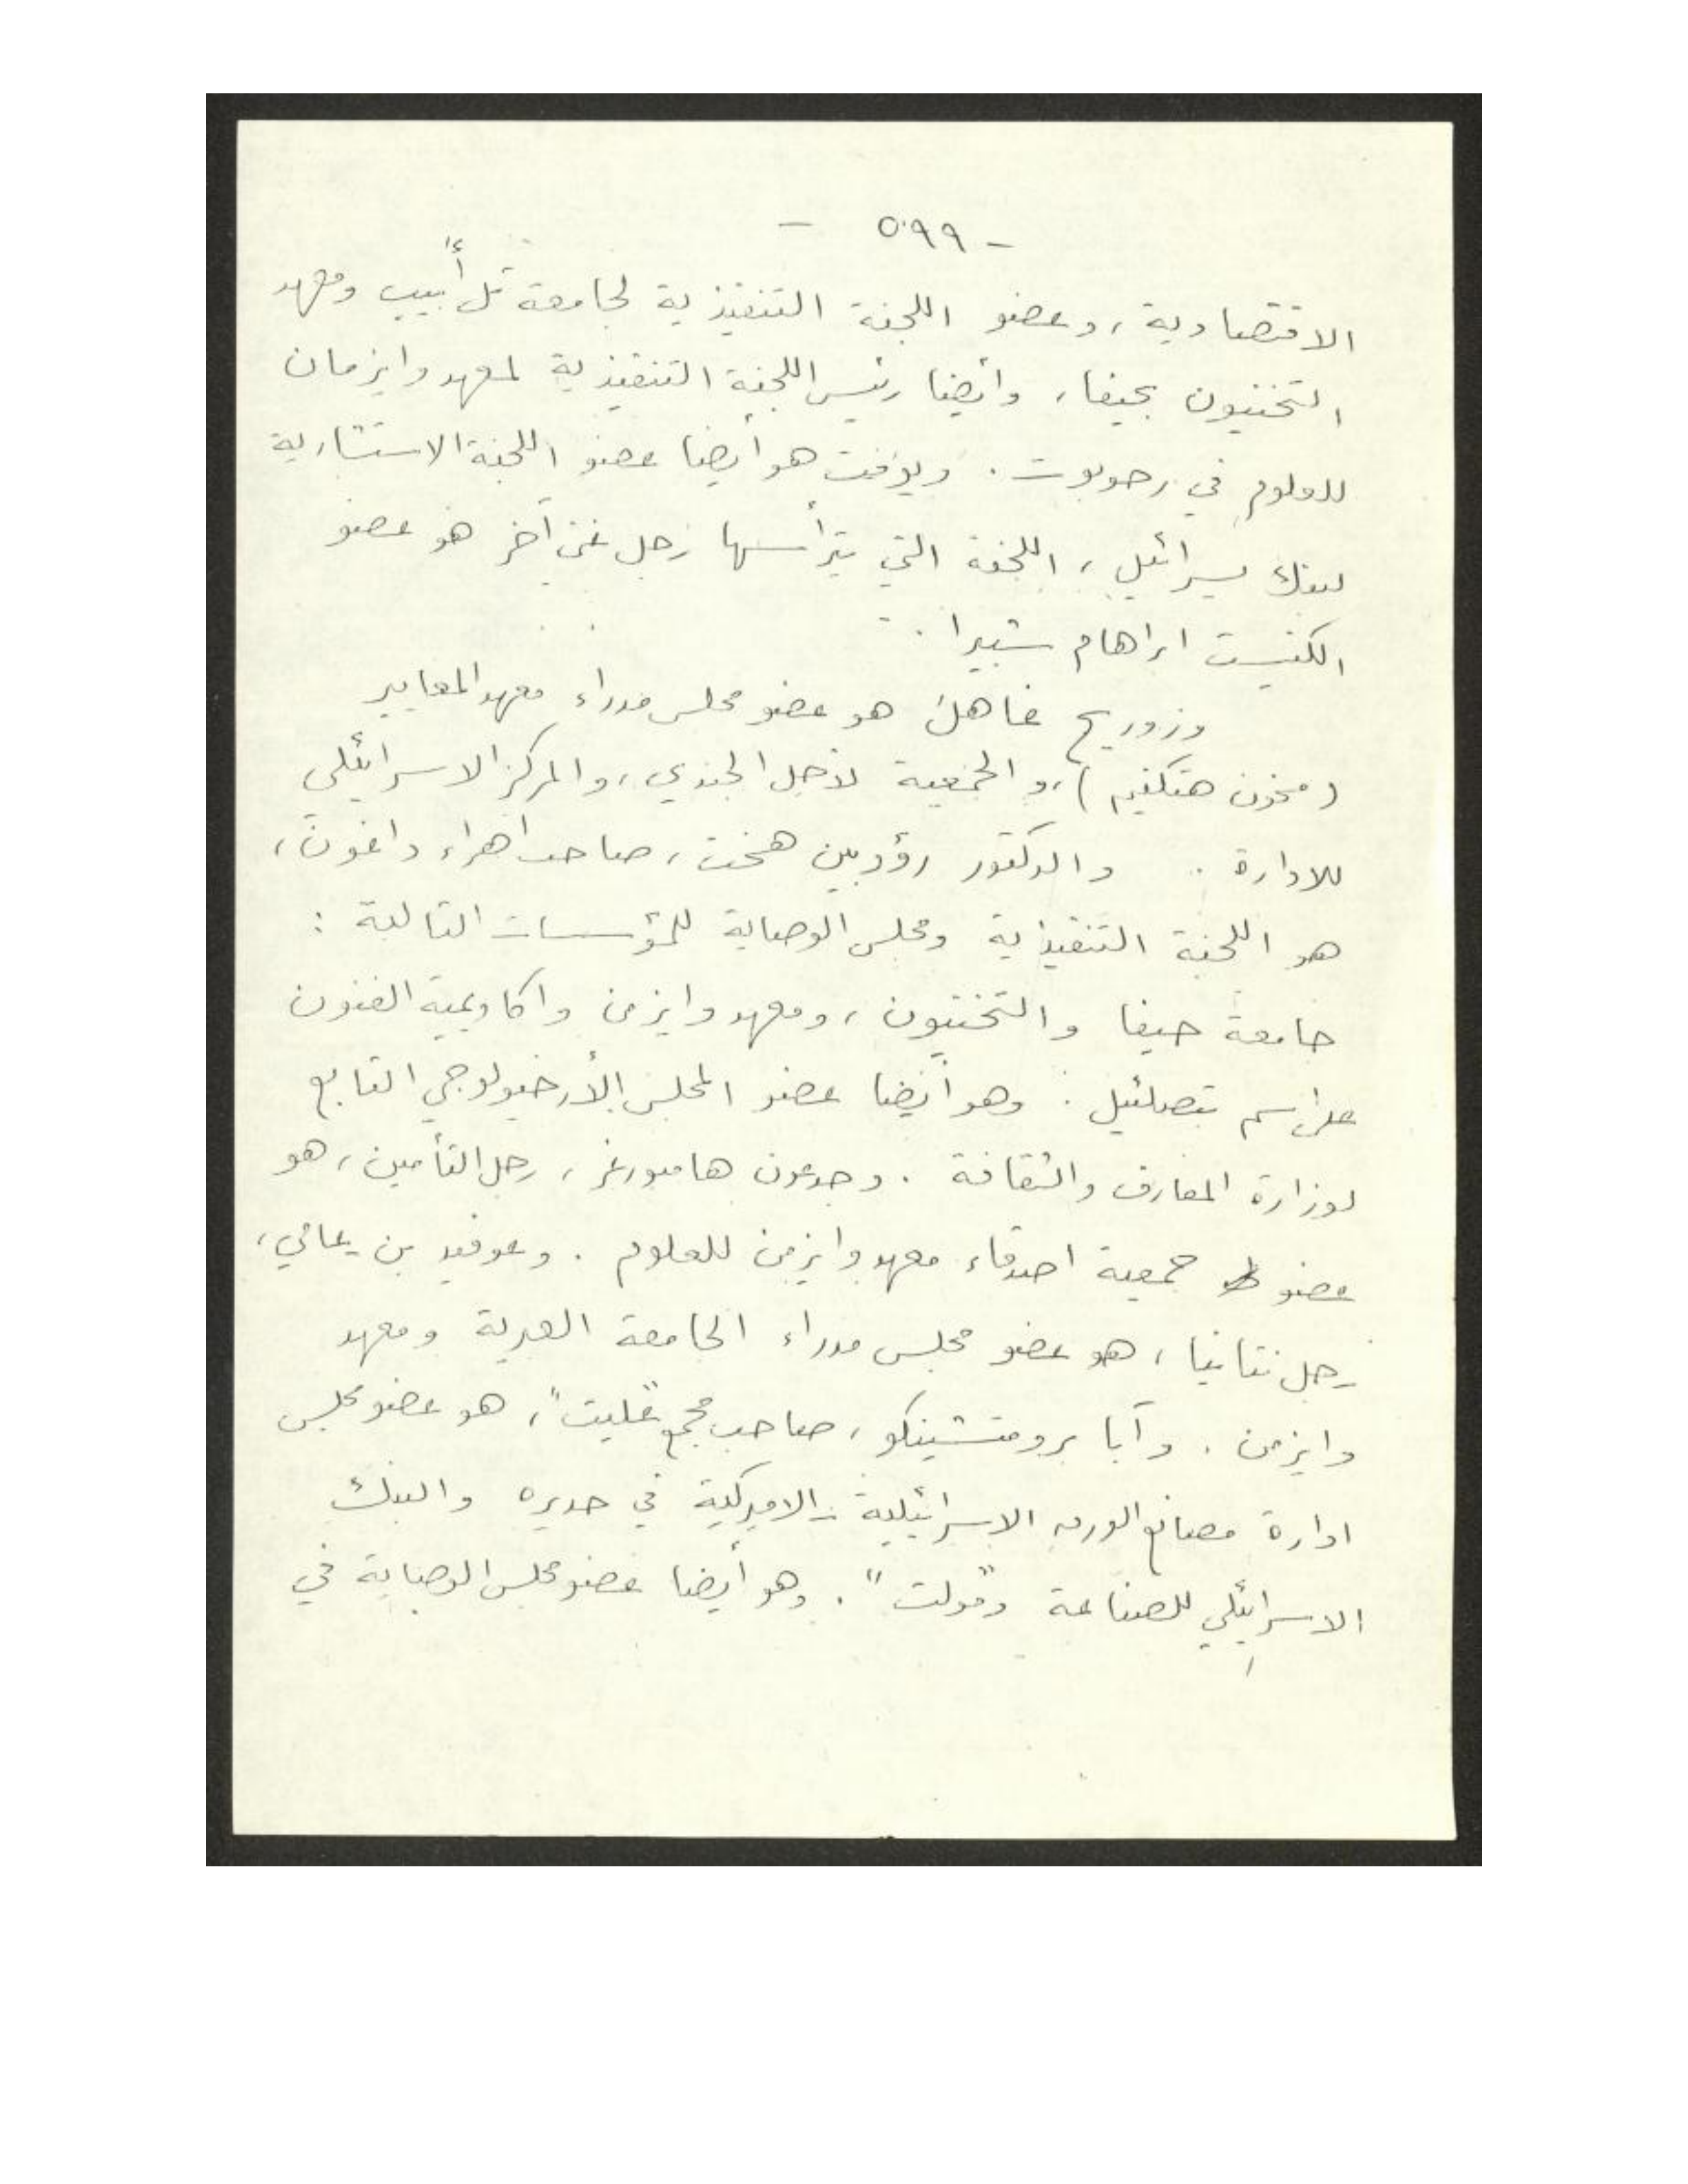 - ٥٠٩٩ -
الاقتصادية، وعضو اللجنة التنفيذية لجامعة تل أبيب ومعهد
التخنيون بحيفا، وأيضا رئيس اللجنة التنفيذية لمعهد وايزمان
للعلوم في رحوبوت. ويوفت هو أيضا عضو اللجنة الاستشارية
لبنك يسرائيل، اللجنة التي يترأسها رجل غني آخر هو عضو
الكنيست ابراهام شبيرا.
وزوريح غاهل هو عضو مجلس مدراء معهد المعايير
(مخون هتكنيم)، والجمعية لأجل الجندي، والمركز الاسرائيلي
للادارة. والدكتور رؤوبين هخت، صاحب اهراء داغون،
هو اللجنة التنفيذية ومجلس الوصاية للمؤسسات التالية:
جامعة حيفا والتخنيون، ومعهد وايزمن واكاديمية الفنون
على اسم بتصلئيل. وهو أيضا عضو المجلس الأرخيولوجي التابع
لوزارة المعارف والثقافة. وجدعون هامبورغر، رجل التأمين، هو
عضو جمعية اصدقاء معهد وايزمن للعلوم. وعوفيد بن عامي،
رجل نتانيا، هو عضو مجلس مدراء الجامعة العبرية ومعهد
وايزمن. وآبا برومتشينكو، صاحب مجمع "غليت"، هو عضو مجلس
ادارة مصانع الورق الاسرائيلية - الاميركية في حديره والبنك
الاسرائيلي للصناعة و"مولت". وهو أيضا عضو مجلس الوصاية في